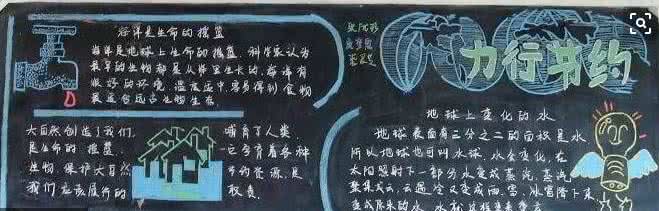 海洋是生命的摇篮
海洋是地球上生命的摇篮，科学家认为
最早的生物都是从海里生长的，海洋有
很好的环境，温度适中，容易得到食物
最适合远古生物生存
大自然创造了我们， 哺育了人类
是生命的摇篮， 它孕育着各种
生物 保护大自然 的资源，是
我们应该履行的 权责。
力行节约
地球上变化的水
地球表面有三分之二的面积是水
所以地球也可叫水球，水会变化，在
太阳照射下一部分水变成蒸汽，蒸汽
聚集成云，云遇冷又变成雨、雪、冰雹降下来
变成原来的水